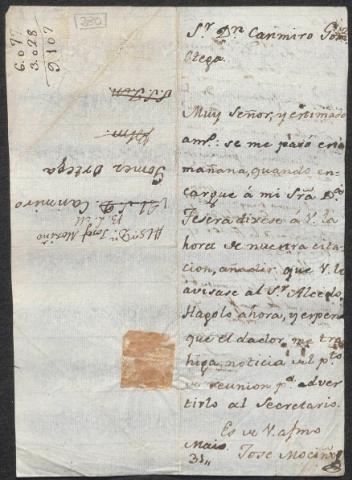 Sr. Dn. Casimiro Gomez
Ortega.
Muy Señor, y estimado
amo.: se me pasó esta
mañana, quando en-
cargue à mi Sra. Da.
Tesera dixese á V. la
hora de nuestra cita-
cion, añadir que V. le
avisase al Sr. Alcedo.
Hagolo ahora, y espero
que el dador me tra-
higa noticia del pto.
de reunion pa. adver-
tirlo al Secretario.
Es de V. afmo
Maio.
31,, Jose Mociño
Al Sr. D. Josef Moziño
B. L. M.
Casimiro
Gomez Ortega
330
6.077
3.028
9.107